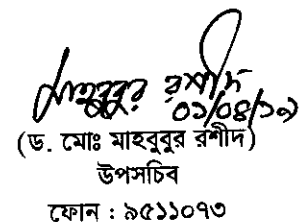 মাহবুবুর রশীদ
০১/০৪/১৯
(ড. মোঃ মাহবুবুর রশীদ)
উপসচিব
ফোন : ৯৫১১০৭৩